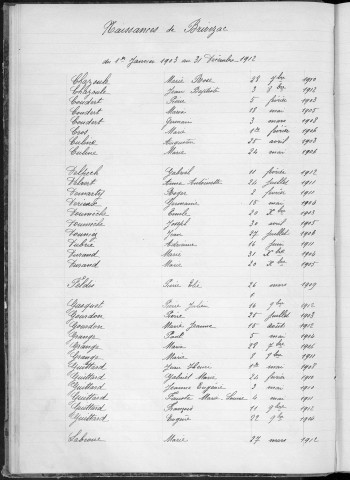 Naissances de Brenzac
du 1er Janvier 1903 au 31 Décembre 1912
Chassule Marie Rose 28 9bre 1910
Chassule Jean Baptiste 3 8bre 1912
Coudert Pierre 5 février 1903
Coudert Marie 18 mai 1905
Coudert Germain 3 mars 1908
Cros Marie 1er février 1906
Culine Augustin 25 avril 1903
Culine Marie 24 mai 1906
Delbech Gabriel 11 février 1912
Marie Antoinette 24 juillet 1911
Roger 2 février 1911
Germaine 15 mai 1904
20 Xbre 1903
Joseph 30 avril 1905
Jean 27 juillet 1908
Dubrie Adrienne 16 juin 1911
Durand Marie 31 Xbre 1904
Durand Marie 20 Xbre 1905
Pierre Elie 26 mars 1909
Gasquet Pierre Julien 16 9bre 1912
Gourdon Pierre 25 juillet 1903
Gourdon Marie Jeanne 15 août 1912
Grange Paul 5 mai 1904
Grange Marie 28 7bre 1906
Grange Marie 8 9bre 1911
Guittard Jean 1er mai 1908
Guittard Gabriel Marie 24 février 1910
Guittard Jeanne Eugénie 3 mai 1910
Guittard Marie Louise 4 mai 1911
Guittard François 11 9bre 1912
Guittard Eugène 22 9bre 1904
Labroue Marie 27 mars 1912